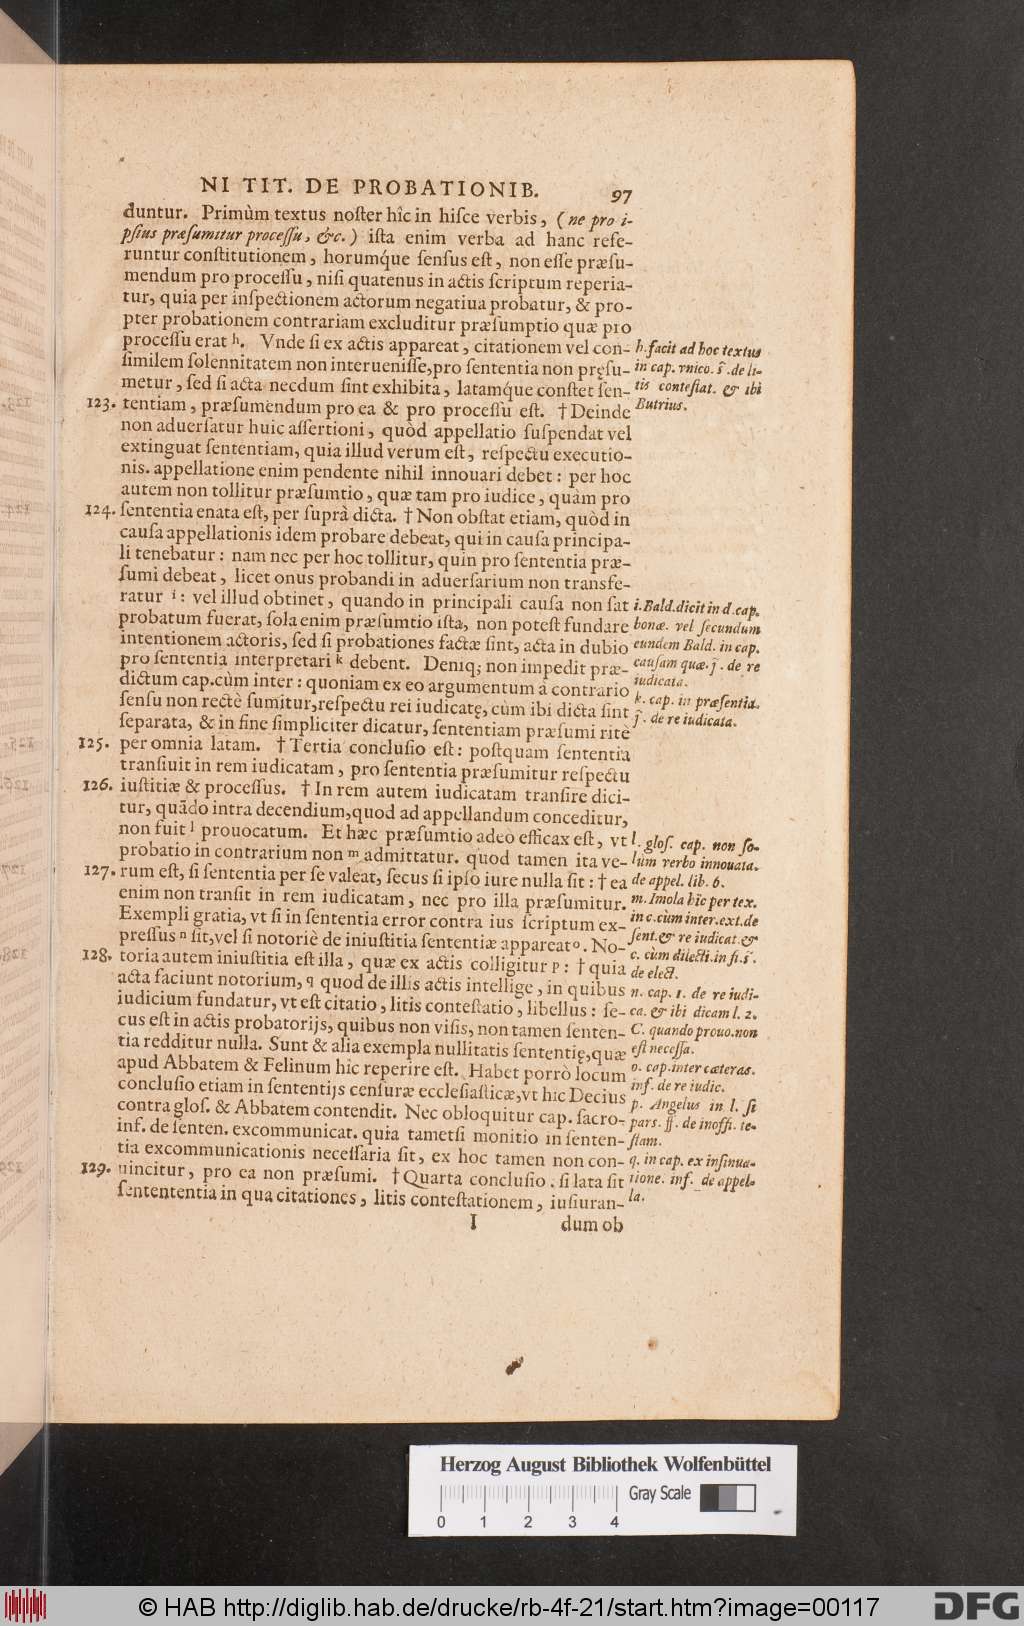 NI TIT. DE PROBATIONIB. 97
duntur. Primùm textus noſter hîc in hiſce verbis, (ne pro i-
pſius præſumitur proceſſu, &c.) iſta enim verba ad hanc refe-
runtur conſtitutionem, horumq́ue ſenſus eſt, non eſſe præſu-
mendum pro proceſſu, niſi quatenus in actis ſcriptum reperia-
tur, quia per inſpectionem actorum negatiua probatur, & pro-
pter probationem contrariam excluditur præſumptio quæ pro
proceſſu erat h. Vnde ſi ex actis appareat, citationem vel con-
ſimilem ſolennitatem non interueniſſe, pro ſententia non pręſu-
metur, ſed ſi acta necdum ſint exhibita, latamq́ue conſtet ſen-
123. tentiam, præſumendum pro ea & pro proceſſu eſt. † Deinde
non aduerſatur huic aſſertioni, quòd appellatio ſuſpendat vel
extinguat ſententiam, quia illud verum eſt, reſpectu executio-
nis. appellatione enim pendente nihil innouari debet: per hoc
autem non tollitur præſumtio, quæ tam pro iudice, quàm pro
124. ſententia enata eſt, per ſuprà dicta. † Non obſtat etiam, quòd in
cauſa appellationis idem probare debeat, qui in cauſa principa-
li tenebatur: nam nec per hoc tollitur, quin pro ſententia præ-
ſumi debeat, licet onus probandi in aduerſarium non transfe-
ratur i: vel illud obtinet, quando in principali cauſa non ſat
probatum fuerat, ſola enim præſumtio iſta, non poteſt fundare
intentionem actoris, ſed ſi probationes factæ ſint, acta in dubio
pro ſententia interpretari k debent. Deniq; non impedit præ-
dictum cap. cùm inter: quoniam ex eo argumentum à contrario
ſenſu non rectè ſumitur, reſpectu rei iudicatę, cùm ibi dicta ſint
ſeparata, & in fine ſimpliciter dicatur, ſententiam præſumi ritè
125. per omnia latam. † Tertia concluſio eſt: poſtquam ſententia
tranſiuit in rem iudicatam, pro ſententia præſumitur reſpectu
126. iuſtitiæ & proceſſus. † In rem autem iudicatam tranſire dici-
tur, quãdo intra decendium, quod ad appellandum conceditur,
non fuit l prouocatum. Et hæc præſumtio adeò efficax eſt, vt
probatio in contrarium non m admittatur. quod tamen ita ve-
127. rum eſt, ſi ſententia per ſe valeat, ſecus ſi ipſo iure nulla ſit: † ea
enim non tranſit in rem iudicatam, nec pro illa præſumitur.
Exempli gratia, vt ſi in ſententia error contra ius ſcriptum ex-
preſſus n ſit, vel ſi notoriè de iniuſtitia ſententiæ appareat o. No-
128. toria autem iniuſtitia eſt illa, quæ ex actis colligitur p: † quia
acta faciunt notorium, q quod de illis actis intellige, in quibus
iudicium fundatur, vt eſt citatio, litis conteſtatio, libellus: ſe-
cus eſt in actis probatorijs, quibus non viſis, non tamen ſenten-
tia redditur nulla. Sunt & alia exempla nullitatis ſententię, quæ
apud Abbatem & Felinum hîc reperire eſt. Habet porrò locum
concluſio etiam in ſententijs cenſuræ eccleſiaſticæ, vt hîc Decius
contra gloſ. & Abbatem contendit. Nec obloquitur cap. ſacro-
inf. de ſenten. excommunicat. quia tametſi monitio in ſenten-
tia excommunicationis neceſſaria ſit, ex hoc tamen non con-
129. uincitur, pro ea non præſumi. † Quarta concluſio. ſi lata ſit
ſentententia in qua citationes, litis conteſtationem, iuſiuran-
I dum ob
h. facit ad hoc textus
in cap. vnico. §. de li-
tis conteſtat. & ibi
Butrius.
i. Bald. dicit in d. cap.
bonæ. vel ſecundum
eundem Bald. in cap.
cauſam quæ. j. de re
iudicata.
k. cap. in præſentia.
j. de re iudicata.
l. gloſ. cap. non ſo-
lùm verbo innouata.
de appel. lib. 6.
m. Imola hîc per tex.
in c. cùm inter. ext. de
ſent. & re iudicat. &
c. cùm dilecti. in fi. §.
de elect.
n. cap. 1. de re iudi-
ca. & ibi dicam l. 2.
C. quando prouo. non
eſt neceſſa.
o. cap. inter cæteras.
inf. de re iudic.
p. Angelus in l. ſi
pars. ff. de inoffi. te-
ſtam.
q. in cap. ex inſinua-
tione. inf. de appel-
la.
Herzog August Bibliothek Wolfenbüttel
Gray Scale
0 1 2 3 4
© HAB http://diglib.hab.de/drucke/rb-4f-21/start.htm?image=00117
DFG